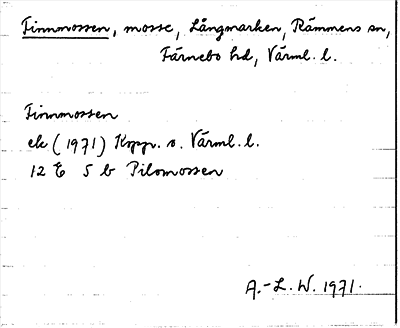 Finnmossen, mosse, Långmarken, Rämmens sn,
Färnebo hd, Värml. l.
Finnmossen
ek (1971) Koppr. o. Värml. l.
12 E 5 b Pilomossen
A.-L. W. 1971.